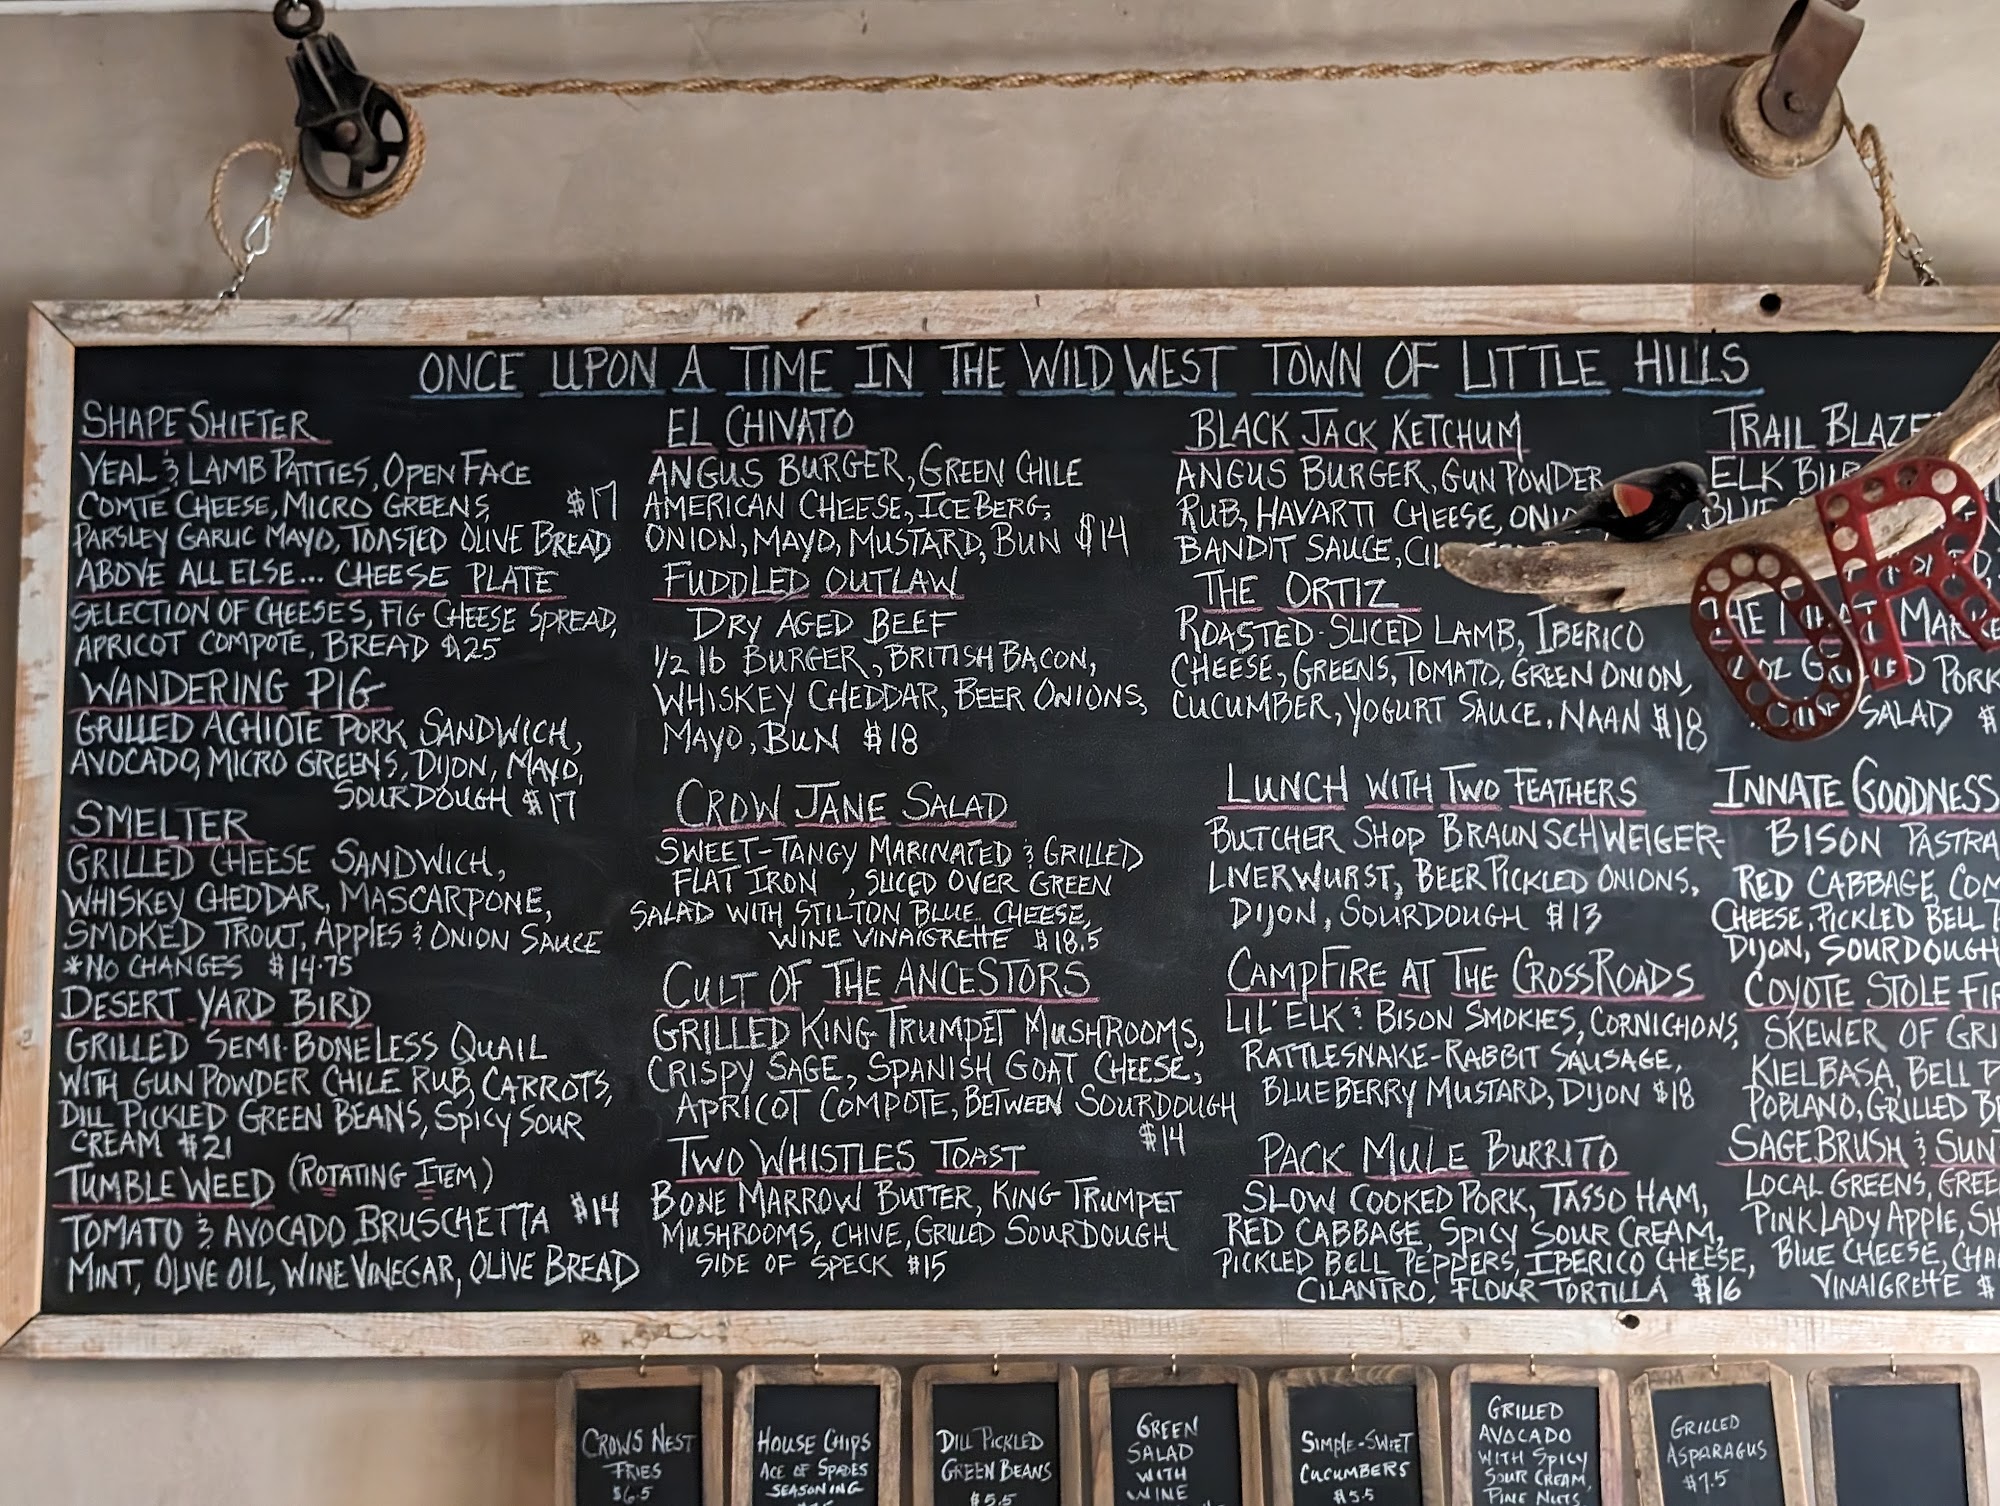 ONCE UPON A TIME IN THE WILD WEST TOWN OF LITTLE HILLS
SHAPE SHIFTER
VEAL & LAMB PATTIES, OPEN FACE
COMTÉ CHEESE, MICRO GREENS, $17
PARSLEY GARLIC MAYO, TOASTED OLIVE BREAD
ABOVE ALL ELSE... CHEESE PLATE
SELECTION OF CHEESES, FIG CHEESE SPREAD,
APRICOT COMPOTE, BREAD $25
WANDERING PIG
GRILLED ACHIOTE PORK SANDWICH,
AVOCADO, MICRO GREENS, DIJON, MAYO,
SOURDOUGH $17
SMELTER
GRILLED CHEESE SANDWICH,
WHISKEY CHEDDAR, MASCARPONE,
SMOKED TROUT, APPLES & ONION SAUCE
*NO CHANGES $14.75
DESERT YARD BIRD
GRILLED SEMI-BONELESS QUAIL
WITH GUN POWDER CHILE RUB, CARROTS,
DILL PICKLED GREEN BEANS, SPICY SOUR
CREAM $21
TUMBLEWEED (ROTATING ITEM)
TOMATO & AVOCADO BRUSCHETTA $14
MINT, OLIVE OIL, WINE VINEGAR, OLIVE BREAD
EL CHIVATO
ANGUS BURGER, GREEN CHILE
AMERICAN CHEESE, ICEBERG,
ONION, MAYO, MUSTARD, BUN $14
FUDDLED OUTLAW
DRY AGED BEEF
1/2 lb BURGER, BRITISH BACON,
WHISKEY CHEDDAR, BEER ONIONS,
MAYO, BUN $18
CROW JANE SALAD
SWEET-TANGY MARINATED & GRILLED
FLAT IRON , SLICED OVER GREEN
SALAD WITH STILTON BLUE CHEESE,
WINE VINAIGRETTE $18.5
CULT OF THE ANCESTORS
GRILLED KING TRUMPET MUSHROOMS,
CRISPY SAGE, SPANISH GOAT CHEESE,
APRICOT COMPOTE, BETWEEN SOURDOUGH
$14
TWO WHISTLES TOAST
BONE MARROW BUTTER, KING TRUMPET
MUSHROOMS, CHIVE, GRILLED SOURDOUGH
SIDE OF SPECK $15
BLACK JACK KETCHUM
ANGUS BURGER, GUN POWDER
RUB, HAVARTI CHEESE,
BANDIT SAUCE,
THE ORTIZ
ROASTED-SLICED LAMB, IBERICO
CHEESE, GREENS, TOMATO, GREEN ONION,
CUCUMBER, YOGURT SAUCE, NAAN $18
LUNCH WITH TWO FEATHERS
BUTCHER SHOP BRAUNSCHWEIGER-
LIVERWURST, BEER PICKLED ONIONS,
DIJON, SOURDOUGH $13
CAMPFIRE AT THE CROSSROADS
LIL' ELK & BISON SMOKIES, CORNICHONS,
RATTLESNAKE-RABBIT SAUSAGE,
BLUEBERRY MUSTARD, DIJON $18
PACK MULE BURRITO
SLOW COOKED PORK, TASSO HAM,
RED CABBAGE, SPICY SOUR CREAM,
PICKLED BELL PEPPERS, IBERICO CHEESE,
CILANTRO, FLOUR TORTILLA $16
TRAIL
ELK
PORK
SALAD $
INNATE GOODNESS
BISON
RED CABBAGE,
CHEESE, PICKLED BELL
DIJON, SOURDOUGH
COYOTE STOLE
SKEWER OF
KIELBASA, BELL
POBLANO, GRILLED
SAGEBRUSH &
LOCAL GREENS,
PINK LADY APPLE,
BLUE CHEESE,
VINAIGRETTE $
OR
CROWS NEST
FRIES
$6.5
HOUSE CHIPS
ACE OF SPADES
SEASONING
DILL PICKLED
GREEN BEANS
$5.5
GREEN
SALAD
WITH
WINE
SIMPLE-SWEET
CUCUMBERS
$5.5
GRILLED
AVOCADO
WITH SPICY
SOUR CREAM,
PINE NUTS
GRILLED
ASPARAGUS
$7.5